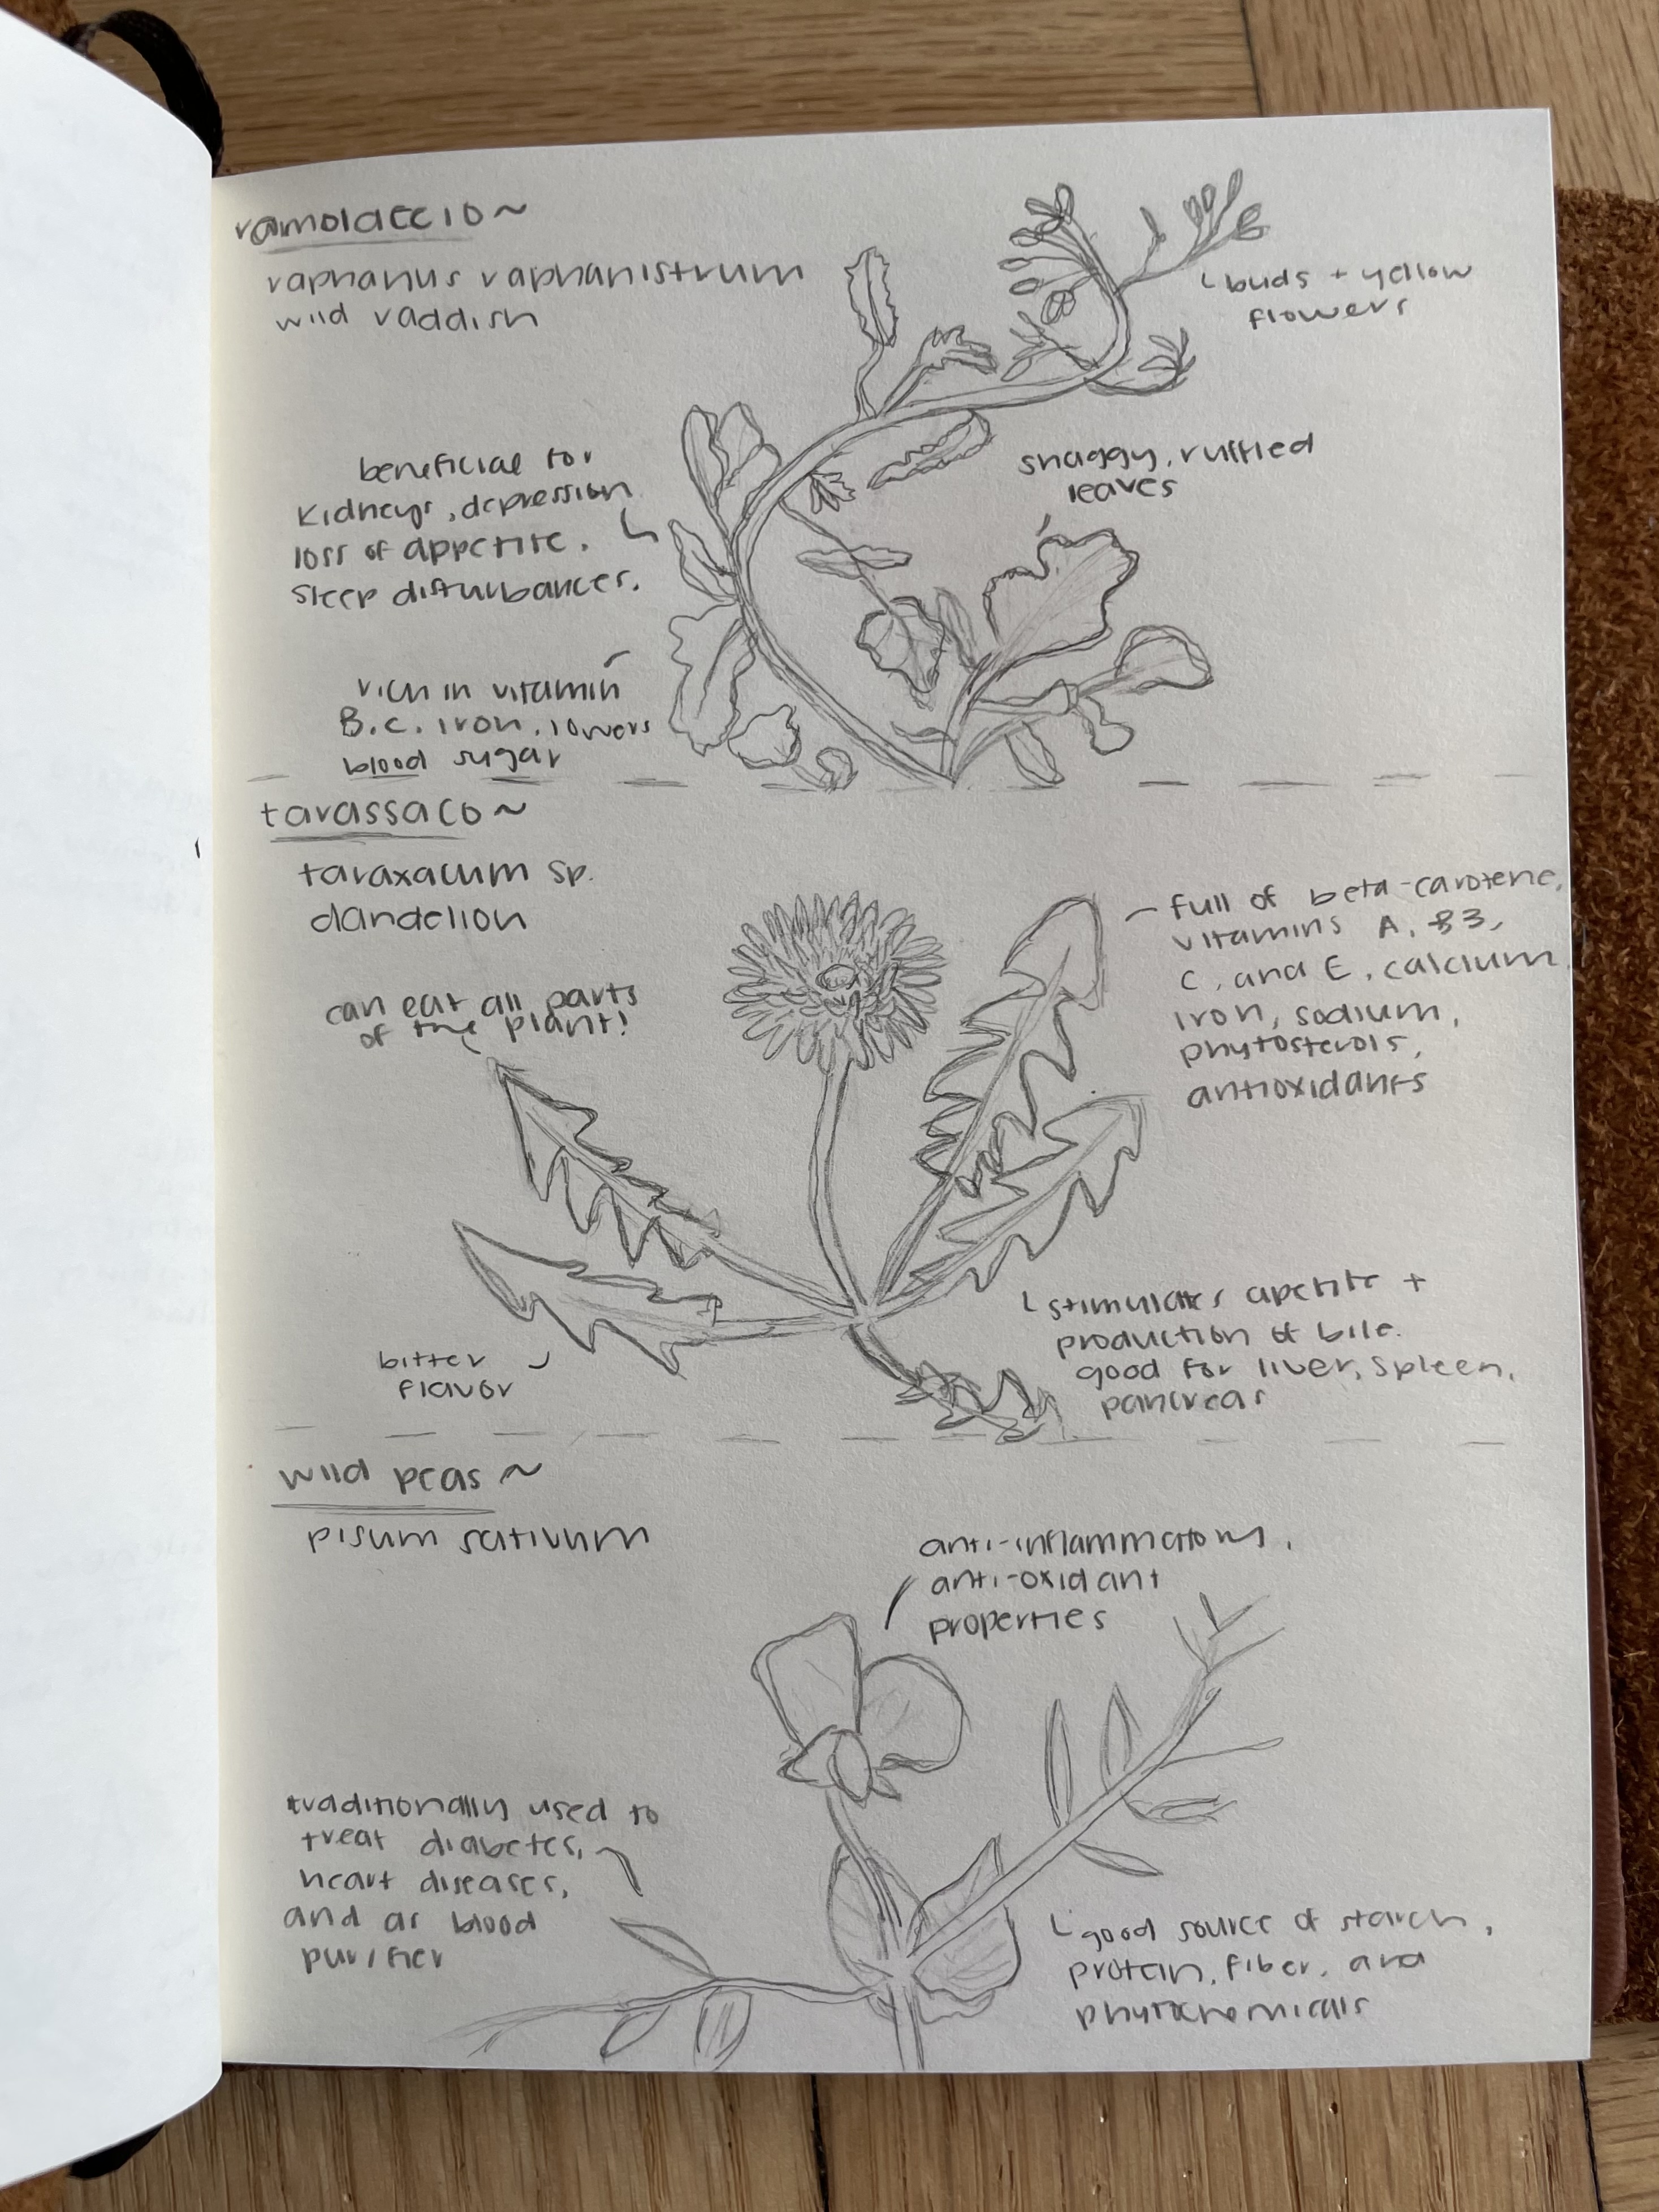 ramolaccio ~
raphanus raphanistrum
wild raddish
buds + yellow
flowers
beneficial for
kidneys, depression
loss of appetite.
sleep disturbances.
shaggy, ruffled
leaves
rich in vitamin
B. C. iron. lowers
blood sugar
tarassaco ~
taraxacum sp.
dandelion
can eat all parts
of the plant!
full of beta-carotene,
vitamins A, B3,
C, and E, calcium,
iron, sodium,
phytosterols,
antioxidants
bitter
flavor
stimulates apetite +
production of bile.
good for liver, spleen,
pancreas
wild peas ~
pisum sativum
anti-inflammatory,
anti-oxidant
properties
traditionally used to
treat diabetes,
heart diseases,
and as blood
purifier
good source of starch,
protein, fiber, and
phytochemicals